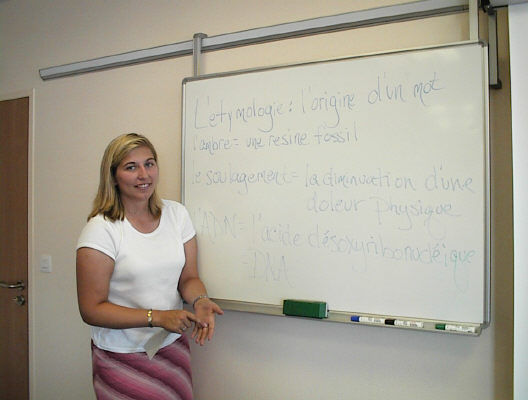 L'étymologie: l'origine d'un mot
l'ambre = une resine fossil
le soulagement = la diminuation d'une
doleur physique
l'ADN = l'acide désoxyribonucléique
= DNA